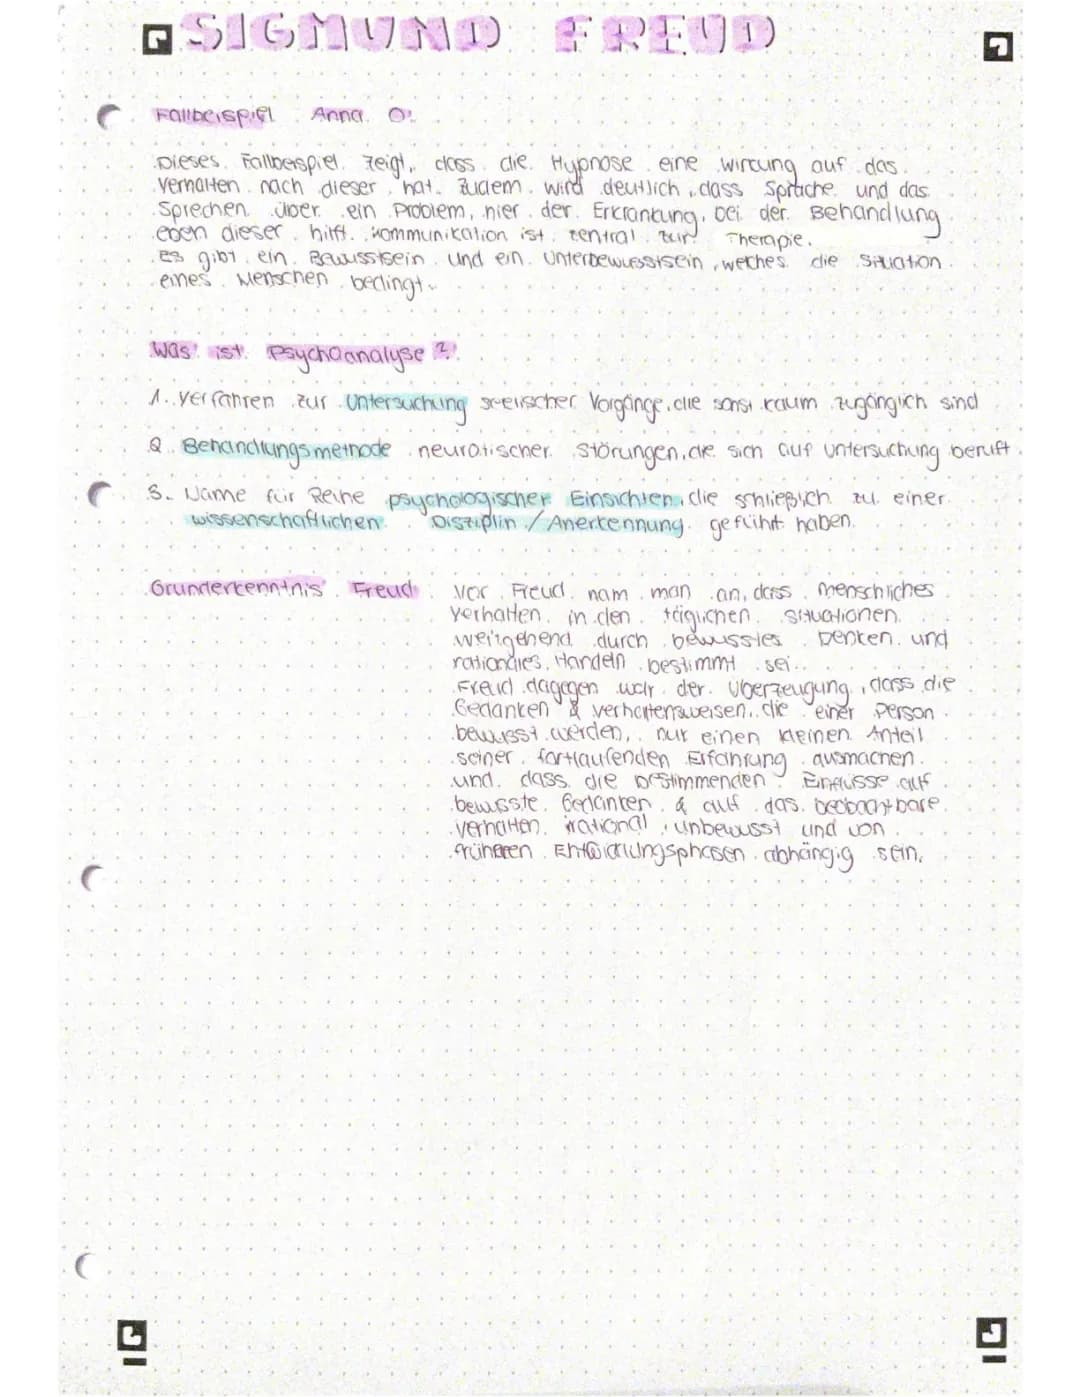 SIGMUND FREUD
Fallbeispiel Anna O:
Dieses Fallbeispiel zeigt, dass die Hypnose eine Wirkung auf das
Verhalten nach dieser hat. Zudem wird deutlich, dass Sprache und das
Sprechen über ein Problem, hier der Erkrankung, bei der Behandlung
eben dieser hilft. Kommunikation ist zentral zur Therapie.
Es gibt ein Bewusstsein und ein Unterbewusstsein, welches die Situation
eines Menschen bedingt.
Was ist Psychoanalyse?
1. Verfahren zur Untersuchung seelischer Vorgänge, die sonst kaum zugänglich sind
2. Behandlungsmethode neurotischer Störungen, die sich auf Untersuchung beruft.
3. Name für Reihe psychologischer Einsichten, die schließlich zu einer
wissenschaftlichen Disziplin / Anerkennung geführt haben.
Grunderkenntnis Freud
Vor Freud nam man an, dass menschliches
Verhalten in den täglichen Situationen
weitgehend durch bewusstes Denken und
rationales Handeln bestimmt sei.
Freud dagegen war der Überzeugung, dass die
Gedanken & Verhaltensweisen, die einer Person
bewusst werden, nur einen kleinen Anteil
seiner fortlaufenden Erfahrung ausmachen
und dass die bestimmenden Einflüsse auf
bewusste Gedanken & auf das beobachtbare
Verhalten irrational, unbewusst und von
früheren Entwicklungsphasen abhängig sein.